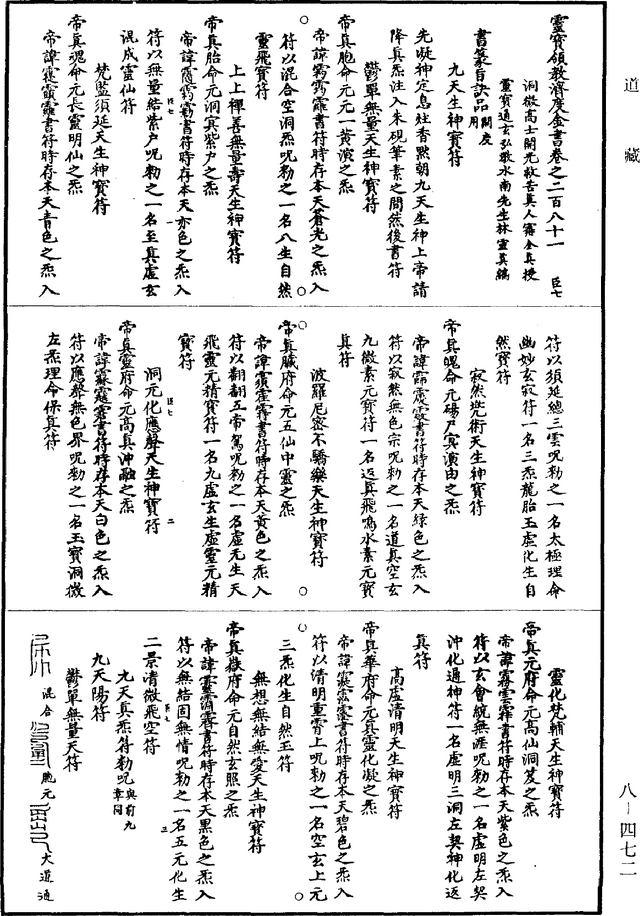 道藏
靈寶領教濟度金書卷之二百八十一
臣七
洞微高士開光救苦真人甯全真授
靈寶通玄弘教水南先生林靈真編
書篆旨訣品開度用
九天生神寶符
先凝神定息炷香默朝九天生神上帝請
降真炁注入朱硯筆素之間然後書符
鬱單無量天生神寶符
帝真胞命元元一黃演之炁
書符時存本天蒼光之炁入
符以混合空洞炁呪勑之一名八生自然
靈飛寶符
上上禪善無量壽天生神寶符
帝真胎命元洞冥紫戶之炁
書符時存本天赤色之炁入
符以無量結紫戶呪勑之一名至真虛玄
混成靈仙符
梵監須延天生神寶符
帝真魂命元長靈明仙之炁
書符時存本天青色之炁入
符以須延總三雲呪勑之一名太極理命
幽妙玄寂符一名三炁龍胎玉虛化生自
然寶符
寂然兜術天生神寶符
帝真魄命元碭尸冥演由之炁
書符時存本天綠色之炁入
符以寂然無色宗呪勑之一名道真空玄
九微素元寶符一名返真飛鳴水素元寶
真符
波羅尼密不驕樂天生神寶符
帝真臟府命元五仙中靈之炁
書符時存本天黃色之炁入
符以翻翻五帝駕呪勑之一名虛无生天
飛靈元精寶符一名九虛玄生虛靈元精
寶符
洞元化應聲天生神寶符
帝真靈府命元高真沖融之炁
書符時存本天白色之炁入
符以應聲無色界呪勑之一名玉寶洞微
左炁理命保真符
靈化梵輔天生神寶符
帝真元府命元高仙洞笈之炁
書符時存本天紫色之炁入
符以玄會統無涯呪勑之一名虛明左契
沖化通神符一名虛明三洞左契神化返
真符
高虛清明天生神寶符
帝真華府命元真靈化凝之炁
書符時存本天碧色之炁入
符以清明重霄上呪勑之一名空玄上元
三炁化生自然玉符
無想無結無愛天生神寶符
帝真嶽府命元自然玄照之炁
書符時存本天黑色之炁入
符以無結固無情呪勑之一名五元化生
二景清微飛空符
九天真炁符勑呪與前九章同
九天陽符
鬱單無量天符
混合
胞元
大道通
八-四七二